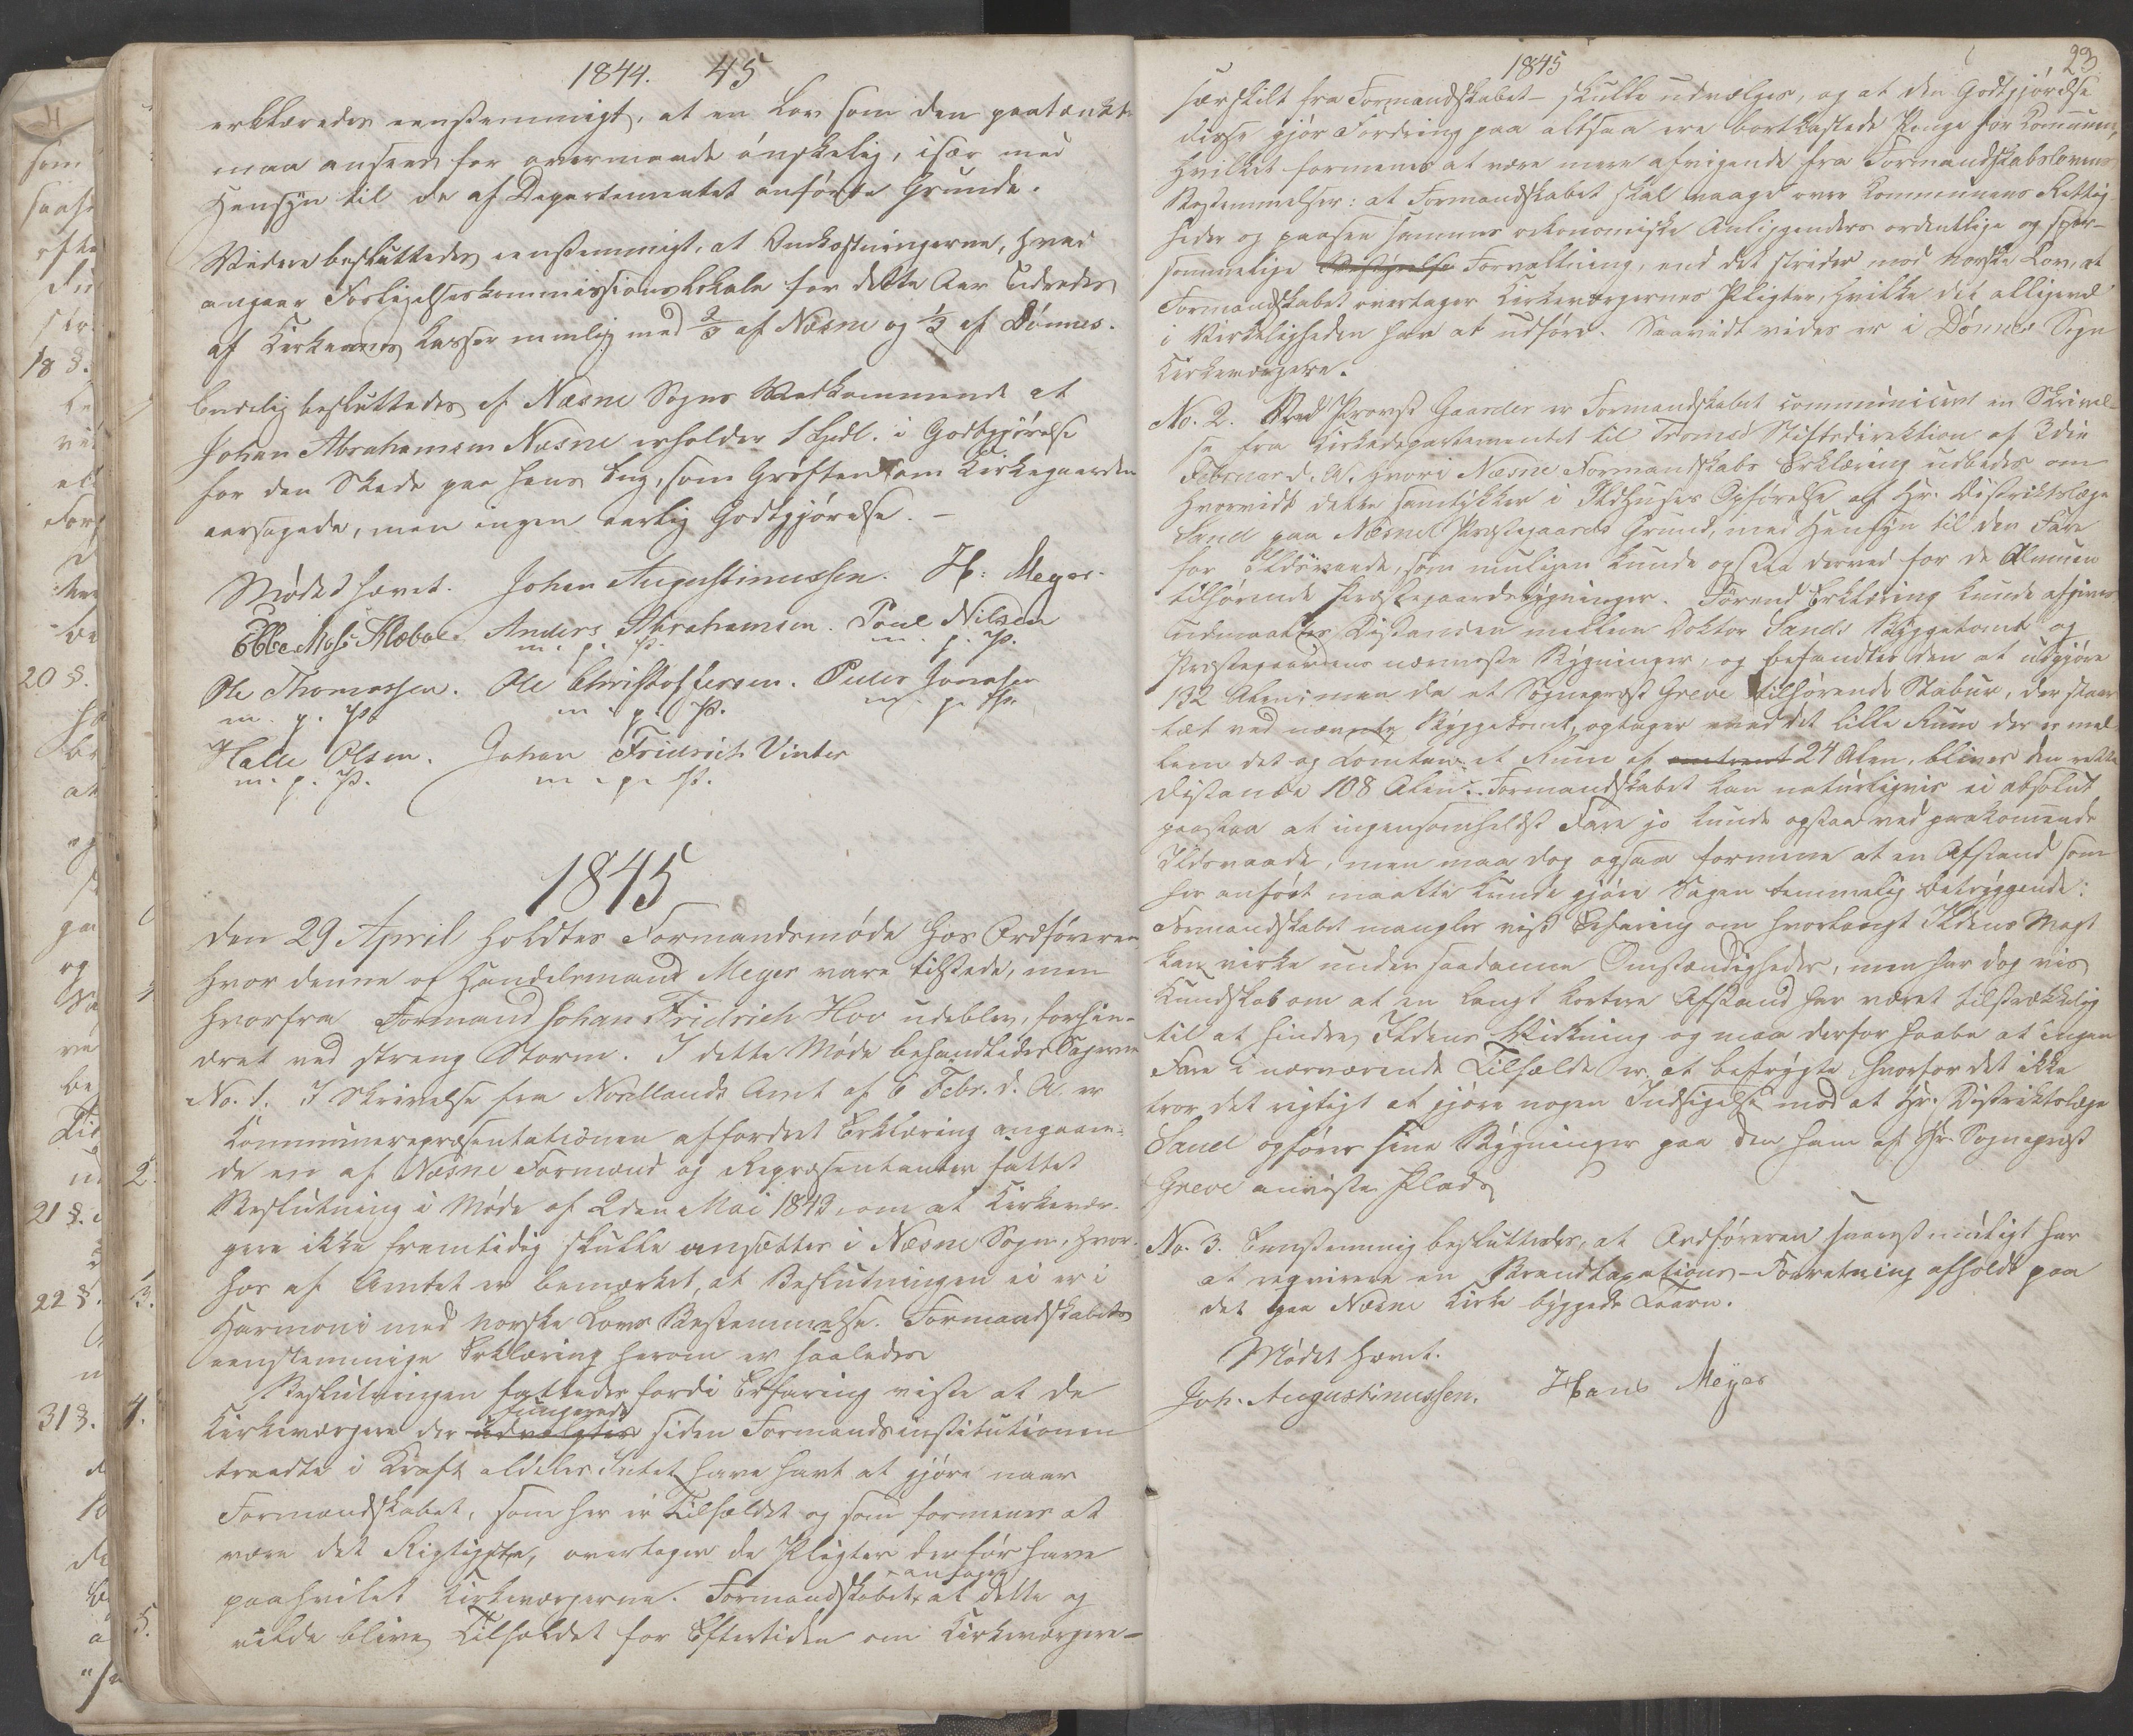 1844. 45
erklæredes eenstemmigt, at en Lov som den paatænkte
maa ansees for overmaade ønskelig, især med
Hensyn til de af Departementet anførte Grunde.
Videre besluttedes eenstemmigt, at Omkostningerne, hvad
angaar Forligelseskommissionslokale for dette Aar udredes
af Kirkernes Kasser nemlig med 2/3 af Næsne og 1/3 af Dønnes.
Endelig besluttedes af Næsne Sogns Vedkommende at
Johan Abrahamsen Næsne erholder 1 Spdl. i Godtgjørelse
for den Skade paa hans Eng, som Grøften om Kirkegaarden
aarsagede, men ingen aarlig Godtgjørelse. -
Mødet hævet. Johan Augustinussen. H: Meyer.
Anders Abrahamsen. Poul Nilsen
m. p. P. p. P.
Ole Thomassen. Ole Christoffersen. Peder Jonassen
m. p. P. m. p. P. m. p. P.
Halle Olsen. Johan Fridrich Vinter
m. p. P. m. p. P.
1845
Den 29 April holdtes Formandsmøde hos Ordføreren
hvor denne og Handelsmand Meyer vare tilstede, men
hvorfra Formand Johan Fridrich Hov udeblev, forhin-
dret ved streng Storm. I dette Møde behandledes Sagerne
No. 1. I Skrivelse fra Nordlands Amt af 6 Febr. d. A. er
Kommunerepræsentationen affordret Erklæring angaaen-
de en af Næsne Formænd og Repræsentanter fattet
Beslutning i Møde af 2den Mai 1843, om at Kirkevær-
gere ikke fremtidig skulle ansættes i Næsne Sogn, hvor-
hos af Amtet er bemærket, at Beslutningen ei er i
Harmoni med norske Lovs Bestemmelse. Formandskabets
eenstemmige Erklæring herom er saaledes
Beslutningen fattedes fordi Erfaring viste at de
Kirkeværgere der udvalgtes fungerede siden Formandsinstitutionen
traadte i Kraft aldeles Intet have havt at gjøre naar
Formandskabet, som her er Tilfældet og som formenes at
være det Rigtigste, overtager de Pligter der før have
paahvilet Kirkeværgerne. Formandskabet ansaae at dette og
vilde blive Tilfældet for Eftertiden om Kirkeværgere-
1845 23
særskilt fra Formandskabet - skulle udvælges, og at den Godtgjørelse
disse gjør Fordring paa altsaa ere bortkastede Penge for Communen,
hvilket formenes at være mere afvigende fra Formandskabslovens
Bestemmelser: at Formandskabet skal vaage over Kommunens Rettig-
heder og paasee sammes oekonomiske Anliggenders ordentlige og spar-
sommelige Forvaltning, end det strider mod norske Lov, at
Formandskabet overtager Kirkeværgernes Pligter, hvilke det alligevel
i Virkeligheden har at udføre. Saavidt vides er i Dønnes Sogn
Kirkeværgere.
No. 2. Ved Provst Gaarder er Formandskabet communiceret en Skrivel-
se fra Kirkedepartementet til Tromsø Stiftsdirektion af 3die
Februar d. A. hvori Næsne Formandskabs Erklæring udbedes om
hvorvidt dette samtykker i Ildhuses Opførelse af Hr. Distriktslæge
Sand paa Næsne Præstegaards Grund, med Hensyn til den Fare
for Ildsvaade, som muligen kunde opstaa derved for de Almuen
tilhørende Præstegaardsbygninger. Førend Erklæring kunde afgives
udmaaltes Distancen mellem Doktor Sands Byggetomt og
Præstegaardens nærmeste Bygninger, og befandtes den at udgjøre
132 Alen; men da et Sognepræst Greve tilhørende Stabur, der staar
tæt ved nævnte Byggetomt, optager med det lille Rum der er mel-
lem det og Tomten et Rum af omtrent 24 Alen, bliver den rette
Distance 108 Alen. Formandskabet kan naturligvis ei absolut
paastaa at ingensomhelst Fare jo kunde opstaa ved paakommende
Ildsvaade, men maa dog ogsaa formene at en Afstand som
her anført maatte kunde gjøre Sagen temmelig betryggende:
Formandskabet mangler vist Erfaring om hvorlangt Ildens Magt
kan virke under saadanne Omstændigheder, men har dog vis
Kundskab om at en langt kortere Afstand har været tilstrækkelig
til at hindre Ildens Virkning og maa derfor haabe at ingen
Fare i nærværende Tilfælde er at befrygte, hvorfor det ikke
troer det rigtigt at gjøre nogen Indsigelse mod at Hr. Distriktslæge
Sand opfører sine Bygninger paa den ham af Hr. Sognepræst
Greve anviste Plads
No. 3. Eenstemmig besluttedes, at Ordføreren snarest muligt har
at reqvirere en Brandtaxations-Forretning afholdt paa
det paa Næsne Kirke byggede Taarn.
Mødet hævet.
Joh. Augustinussen. Hans Meyer